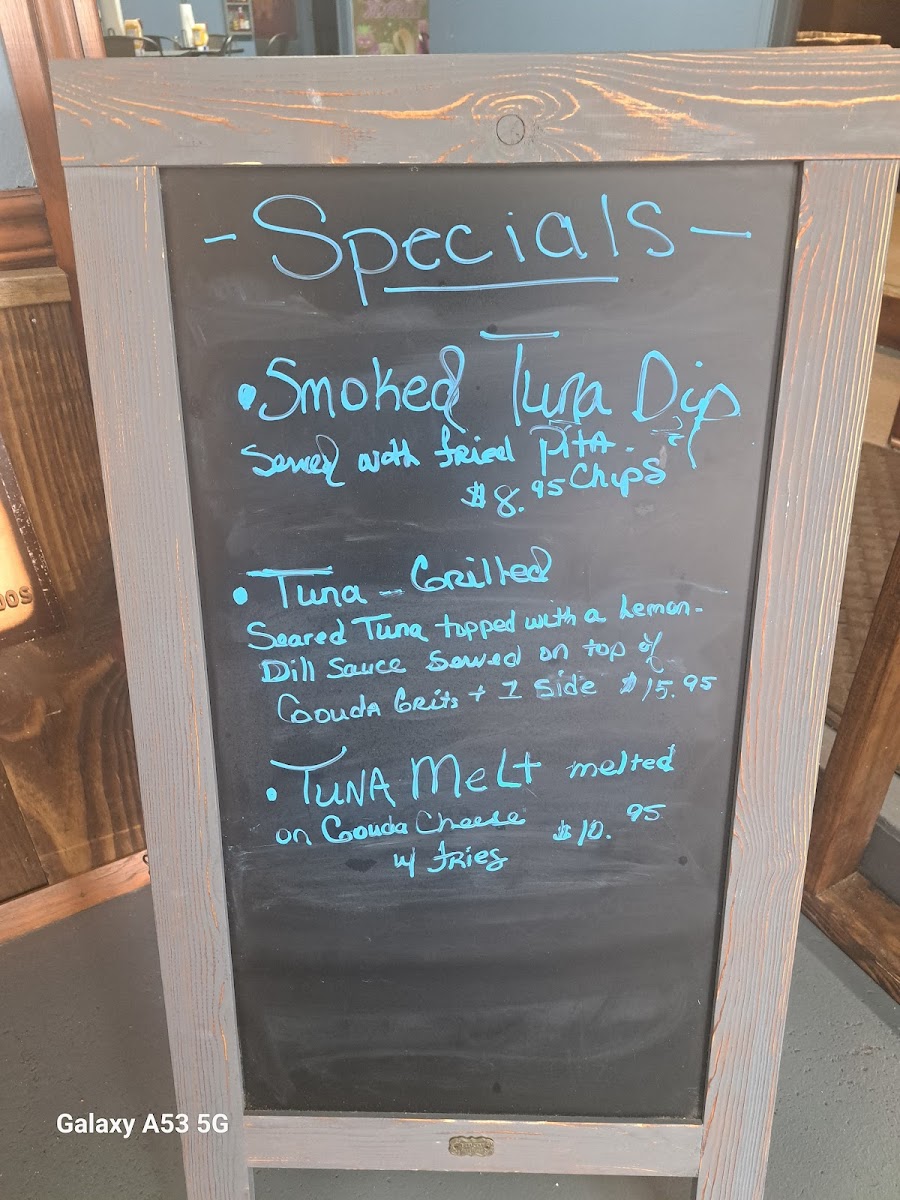 - Specials -
• Smoked Tuna Dip
Served with fried Pita
$8.95 Chips
• Tuna - Grilled
Seared Tuna topped with a Lemon-
Dill Sauce Served on top of
Gouda Grits + 1 Side $15.95
• TUNA MeLt melted
on Gouda Cheese $10.95
w/ fries
OOS
Galaxy A53 5G